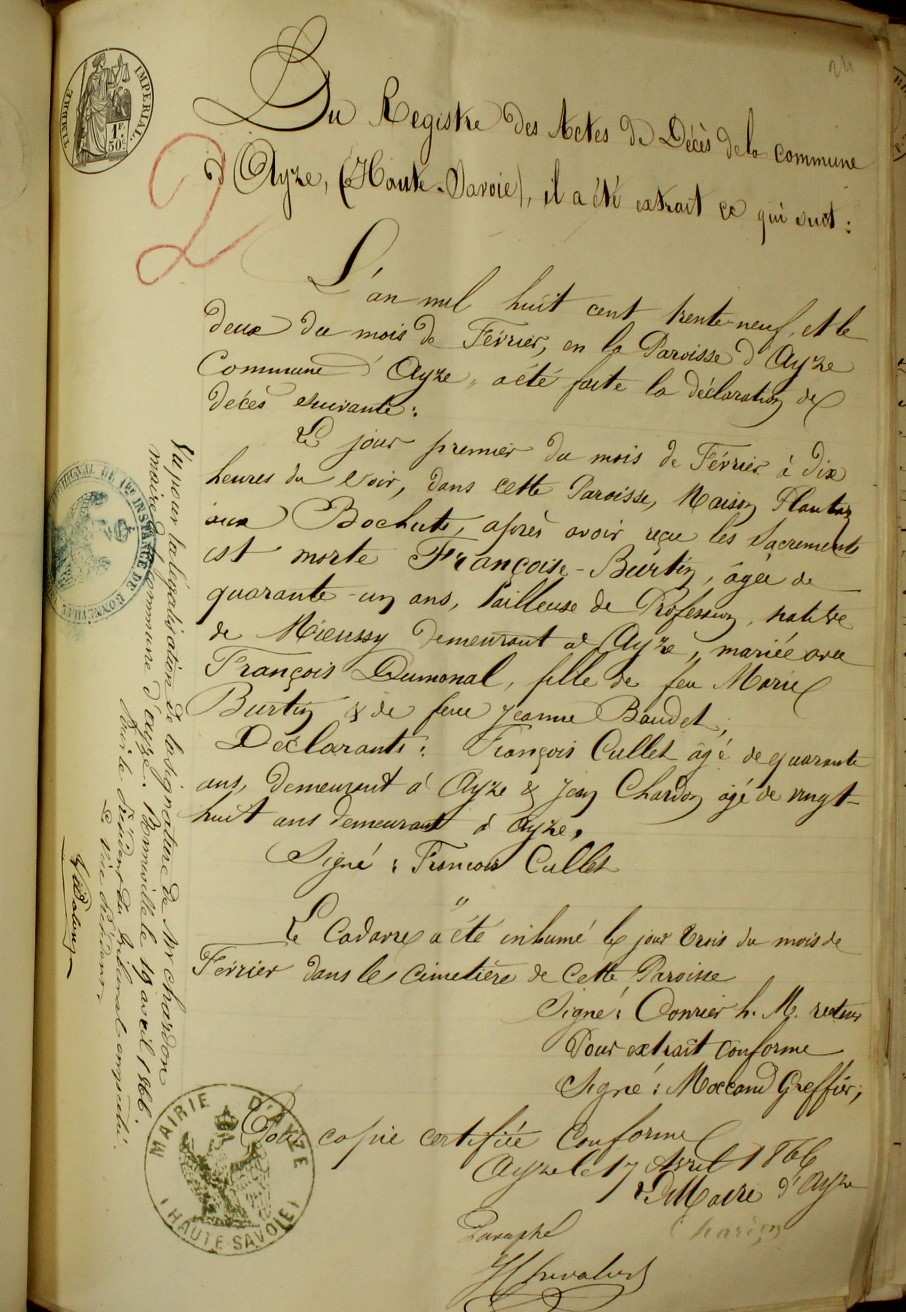 24
TIMBRE IMPERIAL
1F.
50C.
2
Du Registre des Actes de Décès de la commune
d'Ayze, (Haute-Savoie), il a été extrait ce qui suit :
L'an mil huit cent trente-neuf, et le
deux du mois de Février, en la Paroisse d'Ayze
Commune d'Ayze, a été faite la déclaration de
décès suivante :
Le jour premier du mois de Février à dix
heures du soir, dans cette Paroisse, Maison
aux Bochuts, après avoir reçu les Sacrements
est morte Françoise Burtin, âgée de
quarante-un ans, tailleuse de Profession, native
de Mieussy demeurant à Ayze, mariée avec
François Dumonal, fille de feu Marie
Burtin & de feue Jeanne Baudet,
Déclarants : François Cullet âgé de quarante
ans, demeurant à Ayze & Jean Chardon âgé de vingt-
huit ans demeurant à Ayze.
Signé : François Cullet
Le Cadavre a été inhumé le jour trois du mois de
Février dans le cimetière de cette Paroisse
Signé : h. M. recteur
Pour extrait conforme
Signé : Moccand Greffier,
Pour copie certifiée Conforme
Ayze le 17 Avril 1866
Le Maire d'Ayze
Chardon
MAIRIE D'AYZE
(HAUTE-SAVOIE)
Vu pour la légalisation de la signature de Mr chardon
maire de la commune d'ayze. Bonneville le 19 avril 1866.
Pour le Président du tribunal empêché.
Le Vice Président
TRIBUNAL DE 1RE INSTANCE DE BONNEVILLE